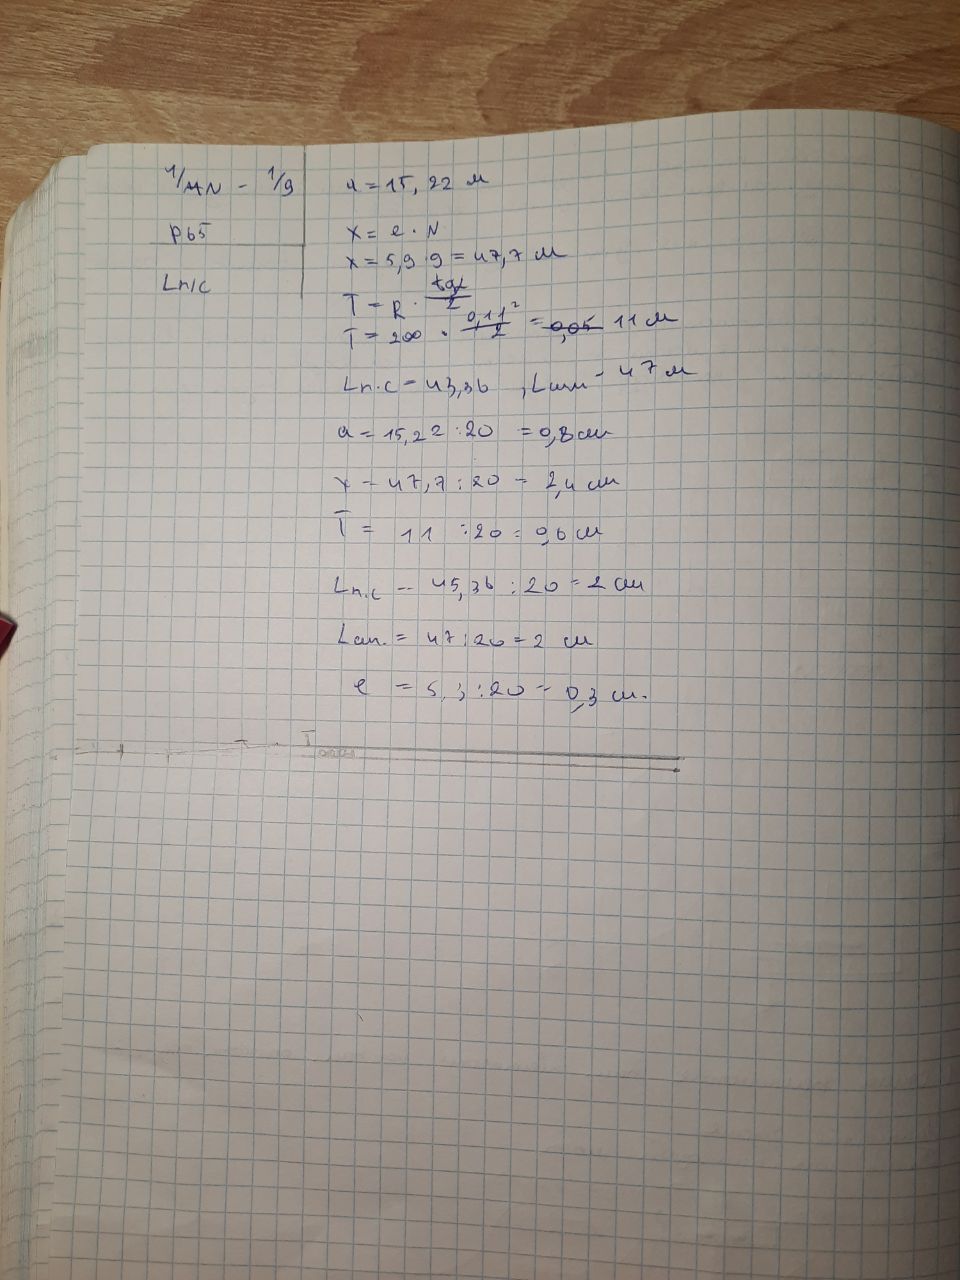 1/MN - 1/9
a = 15,22 м
P65
x = e · N
x = 5,9 · 9 = 47,7 м
Lп/с
T = R · tgα/2
T = 200 · 0,11²/2 = 0,05 11 м
Lп.с = 43,36 , Lшп = 47 м
a = 15,22 : 20 = 0,8 см
x = 47,7 : 20 = 2,4 см
T = 11 : 20 = 0,6 см
Lп.с = 45,36 : 20 = 2 см
Lсп. = 47 : 20 = 2 см
e = 5,3 : 20 = 0,3 см.
T